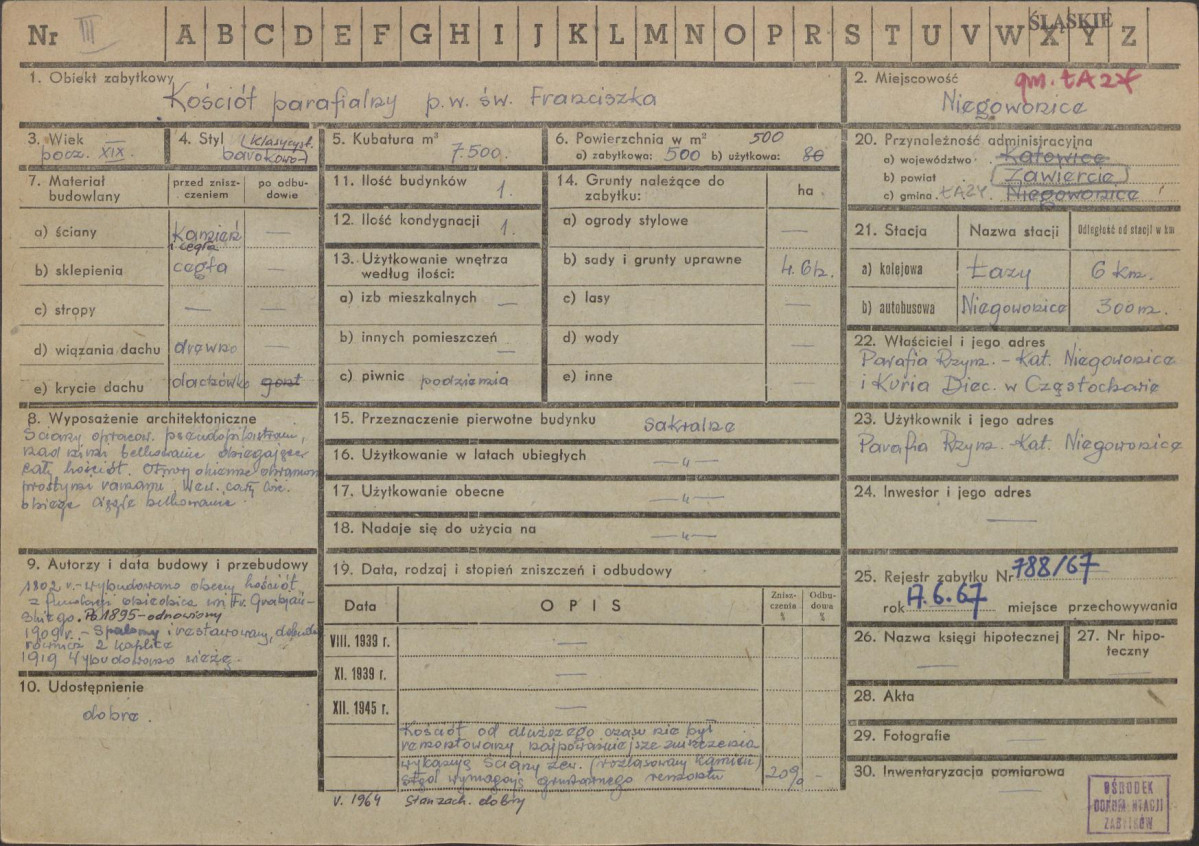 Nr III A B C D E F G H I J K L M N O P R S T U V W X Y Z
ŚLĄSKIE
1. Obiekt zabytkowy
Kościół parafialny p.w. św. Franciszka
2. Miejscowość
gm. ŁAZY
Niegowonice
3. Wiek
pocz. XIX.
4. Styl (klasycyst.
barokowo-
5. Kubatura m³
7.500.
6. Powierzchnia w m² 500
a) zabytkowa: 500 b) użytkowa: 80
20. Przynależność administracyjna
a) województwo Katowice
b) powiat Zawiercie
c) gmina ŁAZY Niegowonice
7. Materiał budowlany
przed zniszczeniem
po odbudowie
a) ściany kamień i cegła —
b) sklepienia cegła —
c) stropy — —
d) wiązania dachu drewno —
e) krycie dachu dachówka gont
11. Ilość budynków 1.
12. Ilość kondygnacji 1.
13. Użytkowanie wnętrza
według ilości:
a) izb mieszkalnych —
b) innych pomieszczeń —
c) piwnic podziemia
14. Grunty należące do
zabytku: ha
a) ogrody stylowe —
b) sady i grunty uprawne 4.6h.
c) lasy —
d) wody —
e) inne —
21. Stacja Nazwa stacji Odległość od stacji w km
a) kolejowa Łazy 6 km.
b) autobusowa Niegowonice 300m.
22. Właściciel i jego adres
Parafia Rzym. - Kat. Niegowonice
i Kuria Diec. w Częstochowie
8. Wyposażenie architektoniczne
Ściany opracow. pseudopilastrami,
nad nimi belkowanie obiegające
cały kościół. Otwory okienne obramion.
prostymi ramami. Wew. całą
obiega belkowanie
15. Przeznaczenie pierwotne budynku sakralne
16. Użytkowanie w latach ubiegłych —„—
17. Użytkowanie obecne —„—
18. Nadaje się do użycia na —„—
23. Użytkownik i jego adres
Parafia Rzym. - Kat. Niegowonice
24. Inwestor i jego adres
—
9. Autorzy i data budowy i przebudowy
1802 r. - wybudowano obecny kościół
z fundacji
skiego. Po 1895 - odnowiony
1909 r. - Spalony i restaurowany,
również 2 kaplice
1919 Wybudowano wieżę.
10. Udostępnienie
dobre.
19. Data, rodzaj i stopień zniszczeń i odbudowy
Data OPIS Zniszczenia % Odbudowa %
VIII. 1939 r. —
XI. 1939 r. —
XII. 1945 r. —
Kościół od dłuższego czasu nie był
remontowany, najpoważniejsze zniszczenia
wykazują ściany zew. (rozlasowany kamień)
stąd wymagają gruntownego remontu 20% -
V. 1964 Stan zach. dobry
25. Rejestr zabytku Nr 788/67
rok A.6.67 miejsce przechowywania
26. Nazwa księgi hipotecznej
—
27. Nr hipoteczny
—
28. Akta
—
29. Fotografie
—
30. Inwentaryzacja pomiarowa
—
OŚRODEK
DOKUMENTACJI
ZABYTKÓW